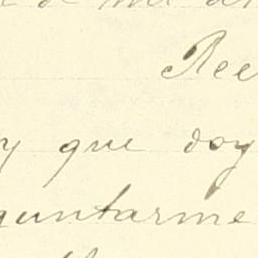 Ree
y que doy
guntarme